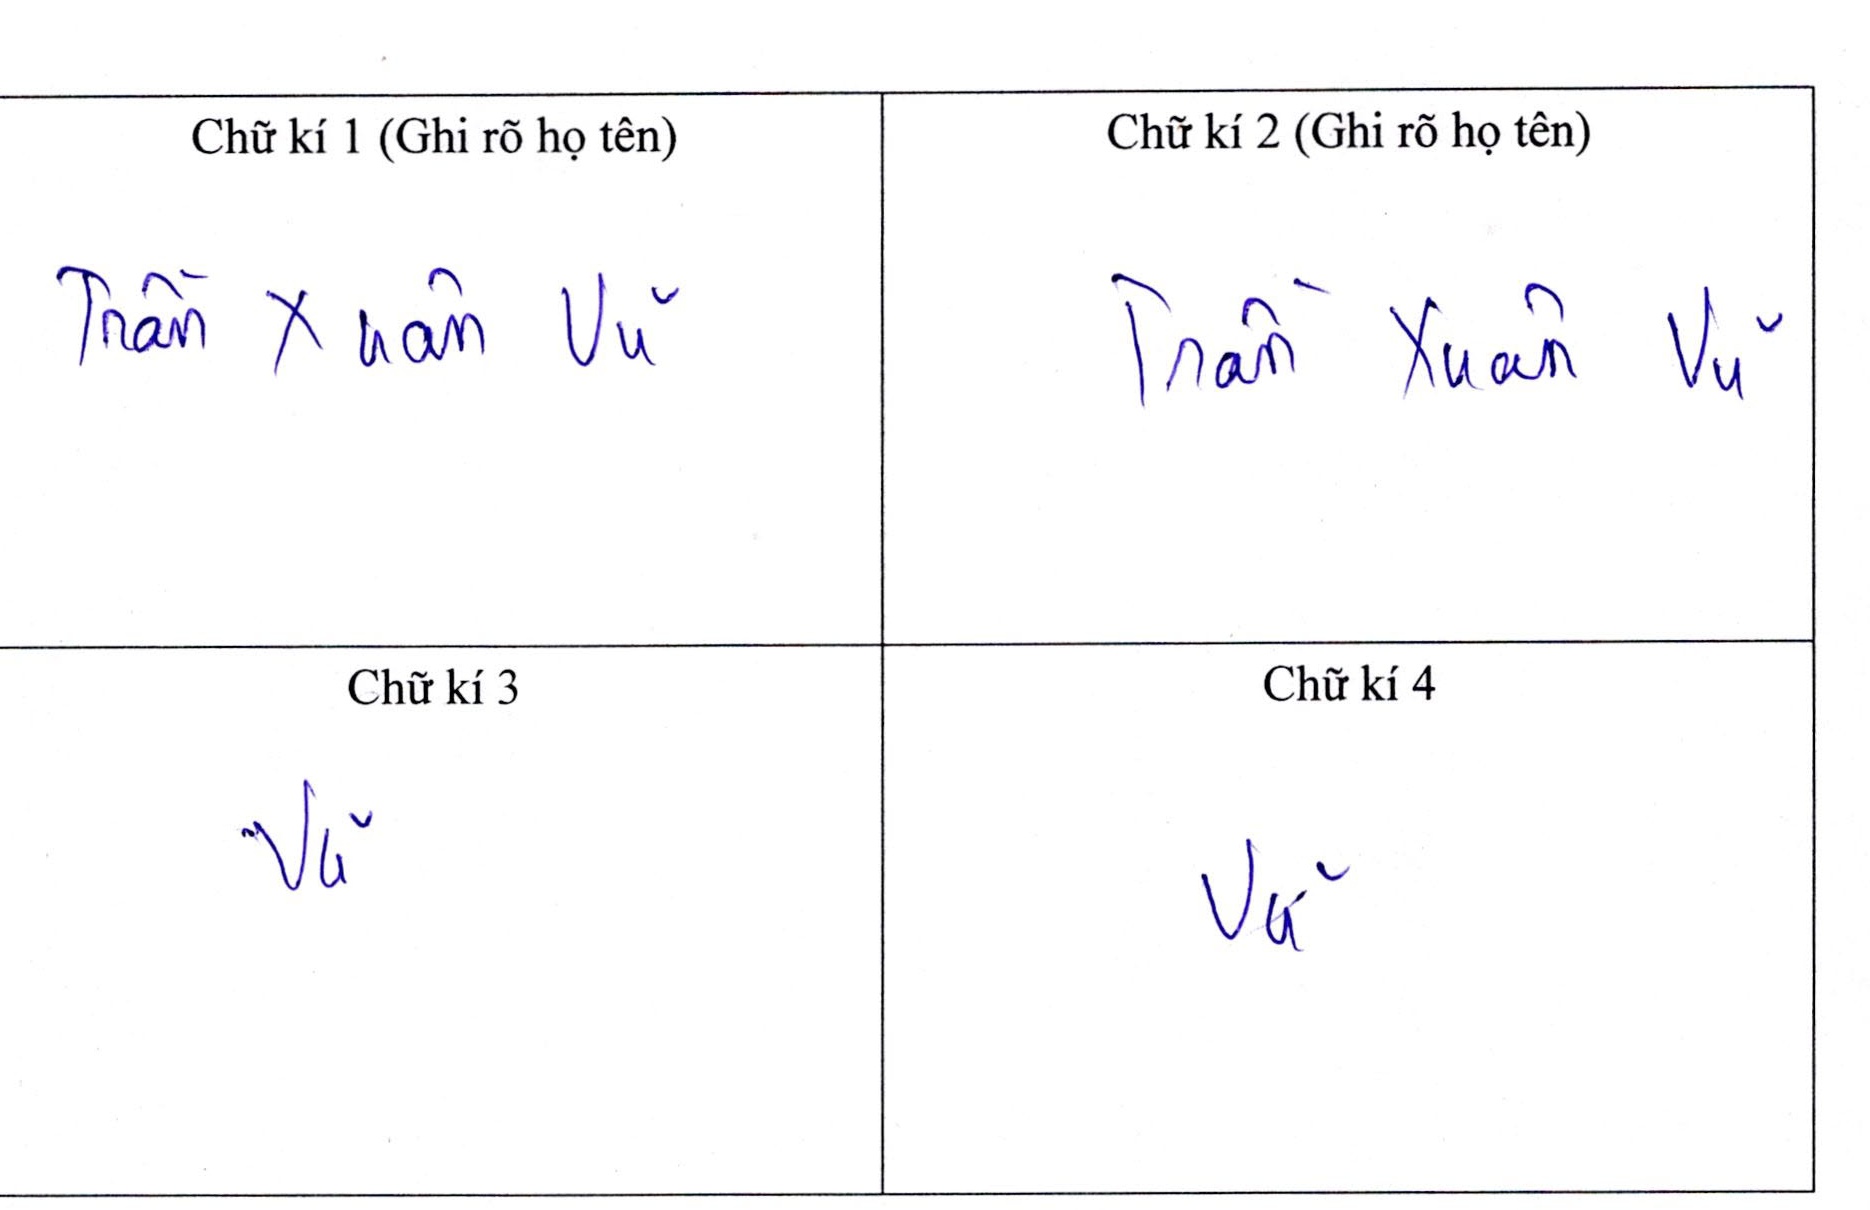 Chữ kí 1 (Ghi rõ họ tên)
Chữ kí 2 (Ghi rõ họ tên)
Trần Xuân Vũ
Trần Xuân Vũ
Chữ kí 3
Chữ kí 4
Vũ
Vũ